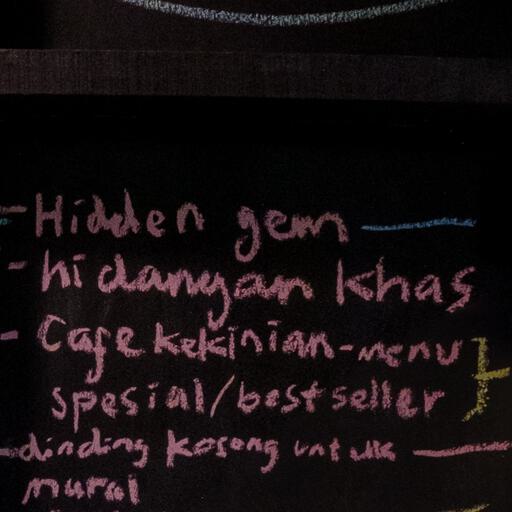 - Hidden gem
- hidangan khas
- Cafe kekinian-menu
spesial/bestseller
- dinding kosong untuk
mural